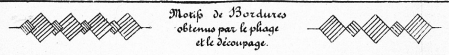 Motifs de Bordures
obtenus par le pliage
et le découpage.